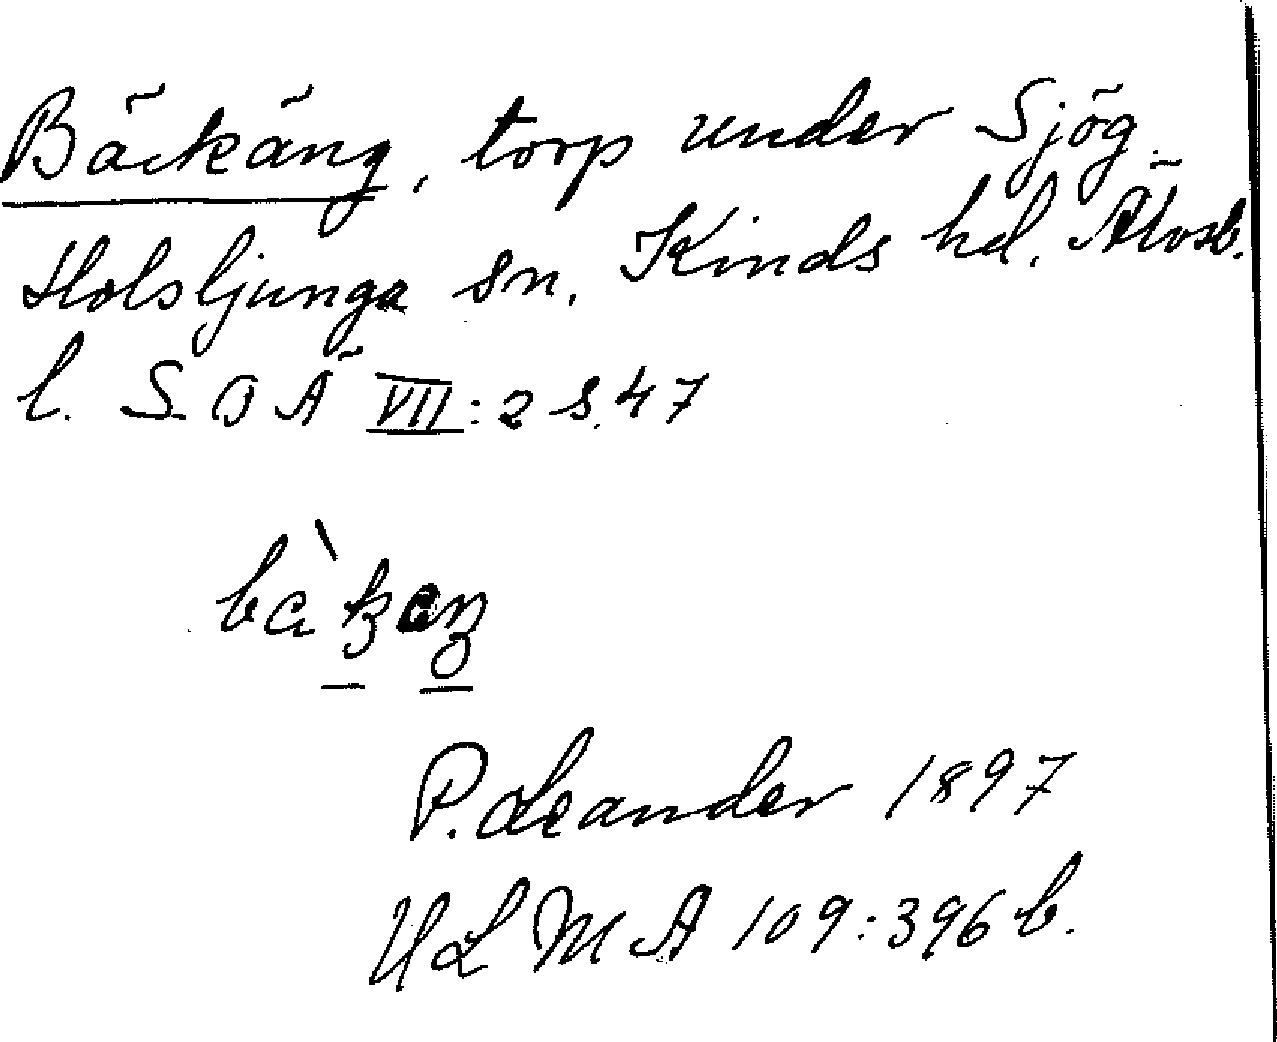 Bäckäng, torp under Sjög.
Holsljunga sn. Kinds hd. Älvsb.
l. S O Ä VII:2 s. 47
P. Leander 1897
ULMA 109:396 b.